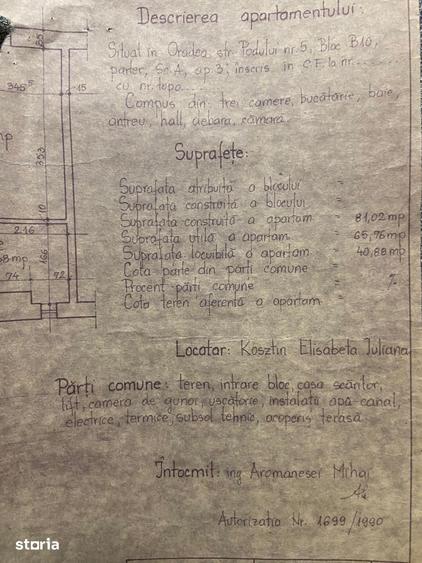 Descrierea apartamentului:
Situat în Oradea, str. Podului nr. 5, Bloc B10,
parter, Sc. A, ap. 3; inscris in C.F. la nr. ......
cu nr. topo.....
Compus din trei camere, bucătărie, baie,
antreu, hall, debara, cămară.
Suprafețe:
Suprafata atribuită a blocului =
Suprafata construită a blocului =
Suprafata construită a apartam = 81,02 mp
Suprafata utilă a apartam = 65,76 mp
Suprafata locuibilă a apartam = 40,88 mp
Cota parte din părti comune =
Procent părti comune = %
Cota teren aferentă a apartam =
Locatar: Kosztin Elisabeta Iuliana
Părți comune: teren, intrare bloc, casa scărilor,
lift, camera de gunoi, uscătorie, instalatii apă-canal,
electrice, termice, subsol tehnic, acoperis terasă
Întocmit: ing Aromanesei Mihai
Autorizatia Nr. 1699/1990
85
345⁵
15
353
10
2.16
166
74
72
mp
8 mp
storia